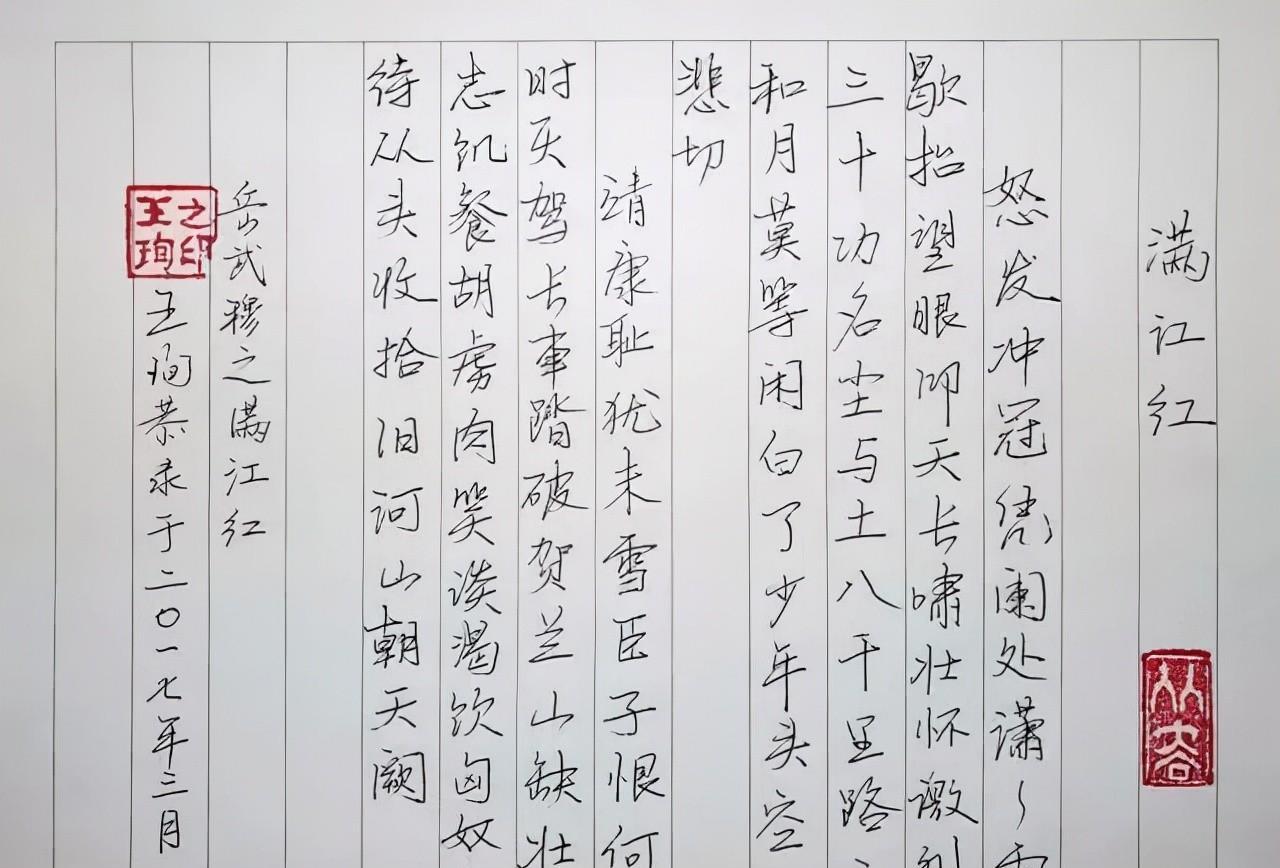 满江红
从容
怒发冲冠凭阑处潇〻雨
歇抬望眼仰天长啸壮怀激烈
三十功名尘与土八千里路
和月莫等闲白了少年头空
悲切
靖康耻犹未雪臣子恨何
时灭驾长车踏破贺兰山缺壮
志饥餐胡虏肉笑谈渴饮匈奴
待从头收拾旧河山朝天阙
岳武穆之满江红
王珣之印
王珣恭录于二〇一七年三月